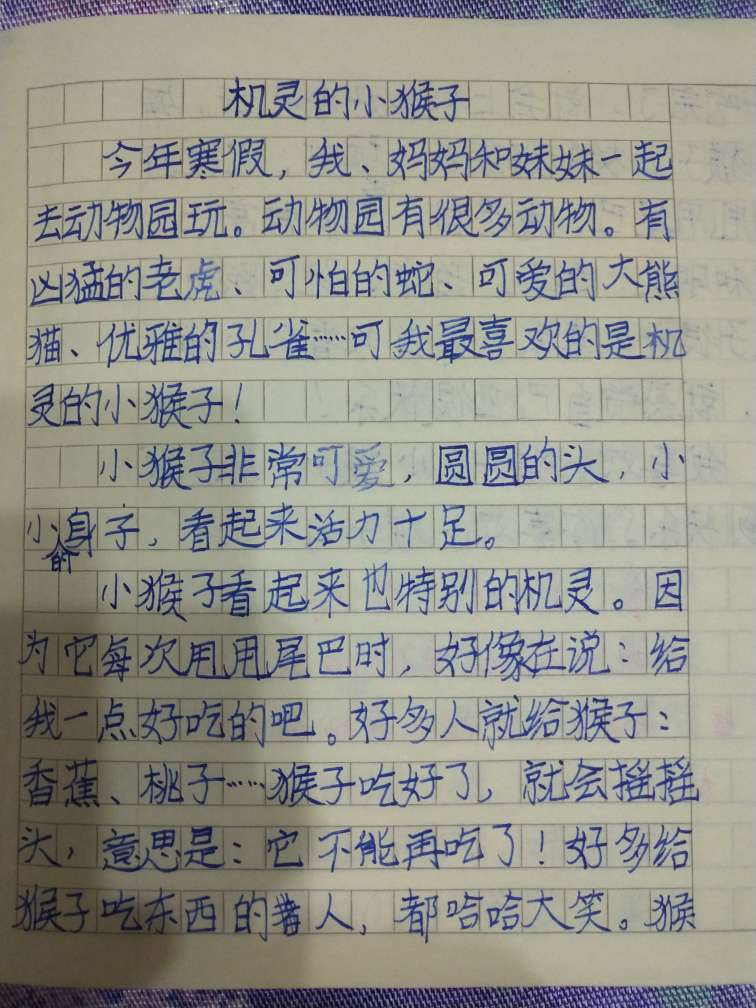 机灵的小猴子
今年寒假，我、妈妈和妹妹一起
去动物园玩。动物园有很多动物。有
凶猛的老虎、可怕的蛇、可爱的大熊
猫、优雅的孔雀……可我最喜欢的是机
灵的小猴子！
小猴子非常可爱，圆圆的头，小
小的身子，看起来活力十足。
小猴子看起来也特别的机灵。因
为它每次甩甩尾巴时，好像在说：给
我一点好吃的吧。好多人就给猴子：
香蕉、桃子……猴子吃好了，就会摇摇
头，意思是：它不能再吃了！好多给
猴子吃东西的人，都哈哈大笑。猴